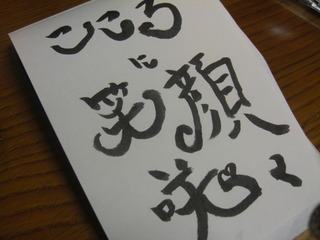 こころ
に
笑顔
咲く